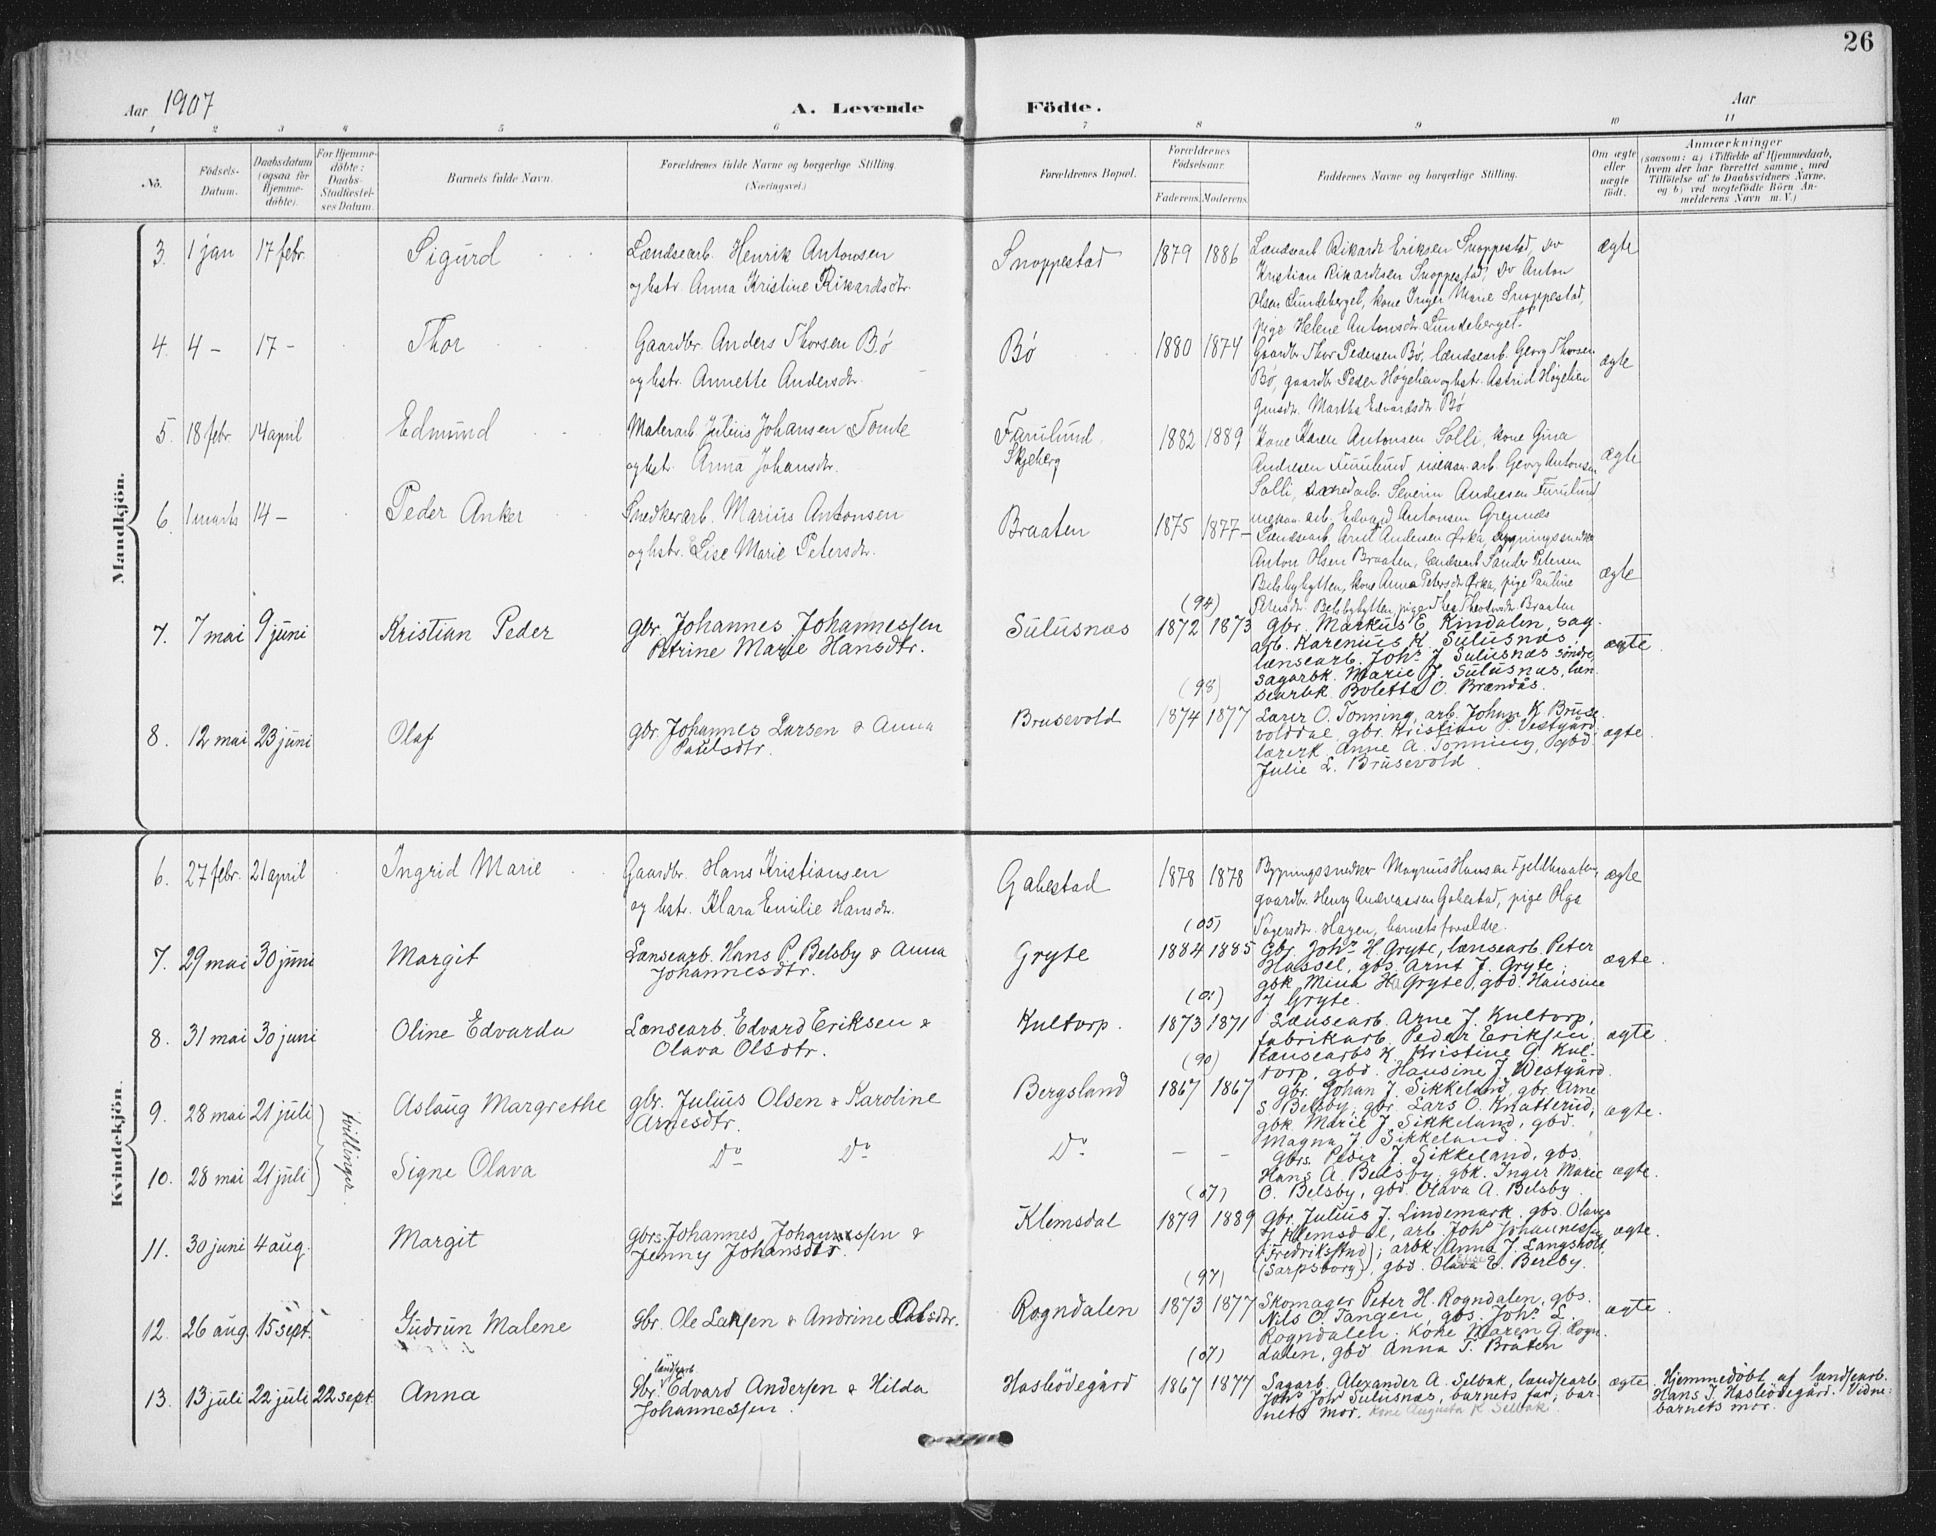 26
Aar 1907
A. Levende Födte.
Aar
1 2 3 4 5 6 7 8 9 10 11
No.
Födsels-Datum.
Daabsdatum (ogsaa for Hjemmedöbte).
For Hjemmedöbte: Daabs-Stadfæstelses Datum.
Barnets fulde Navn.
Forældrenes fulde Navne og borgerlige Stilling. (Næringsvei.)
Forældrenes Bopæl.
Forældrenes Födselsaar.
Faderens. Moderens.
Faddernes Navne og borgerlige Stilling.
Om ægte eller uægte födt.
Anmærkninger
(saasom: a) i Tilfælde af Hjemmedaab, hvem der har forrettet samme, med Tilföielse af to Daabsvidners Navne, og b) ved uægtefödte Börn Anmelderens Navn m. V.)
Mandkjön.
3. 1 jan 17 febr. Sigurd
Lændsearb. Henrik Antonsen
og hstr. Anna Kristine Rikardsdtr.
Snoppestad 1879 1886
Lændsearb Rikardt Eriksen Snoppestad, Do
Kristian Rikardtsen Snoppestad, Do Anton
Olsen Lundeberget, kone Inger Marie Snoppestad,
pige Helene Antonsdtr Lundeberget.
ægte
4. 4 – 17 – Thor
Gaardbr. Anders Thorsen Bø
og hstr. Annette Andersdtr.
Bø 1880 1874
Gaardbr Thor Pedersen Bø, lændsearb. Georg Thorsen
Bø, gaardbr Peder Høgelien og hstr. Astrid Høgelien
Gmsdtr. Martha Edvardsdtr Bø
ægte
5. 18 febr. 14 april Edmund
Malerarb. Julius Johansen Tomte
og hstr. Anna Johansdtr.
Furulund Skjeberg 1882 1889
Kone Karen Antonsen Solli, kone Gina
Andresen Furulund, mekan. arb. Georg Antonsen
Solli, Severin Andresen Furulund
mekan. arb. Edvard Antonsen
ægte
6. 1 marts 14 – Peder Anker
Snedkerarb. Marius Antonsen
og hstr. Lise Marie Petersdtr.
Braaten 1875 1877 –
Lændsearb. Arnt Andersen Ørka, bygningssnedker
Anton Olsen Braaten, lændsearb Sander Petersen
Belsbyhytten, kone Anna Petersdtr Ørka, pige Pauline
Petersdtr. Belsbyhytten, pige Thea Theodorsdtr. Braaten
ægte
7. 7 mai 9 juni Kristian Peder
gbr. Johannes Johannessen
Petrine Marie Hansdtr.
Sulusnæs (94) 1872 1873
gbr. Markus E. Kindalen, sag-
arb. Karenius K. Sulusnæs,
lænsearb. Johs J. Sulusnæs søndre,
sagarbk. Marie J. Sulusnæs, læn-
searbk. Bolette O. Brændås.
ægte.
8. 12 mai 23 juni Olaf
gbr. Johannes Larsen & Anna
Paulsdtr.
Brusevold (98) 1874 1877
Lærer O. Tonning, arb. Johan K. Bruse-
volddal, gbr. Kristian P. Vestgård,
lærerk Anne A. Tonning, gbd.
Julie L. Brusevold.
ægte.
Kvindekjön.
6. 27 febr. 21 april Ingrid Marie
Gaardbr. Hans Kristiansen
og hstr. Klara Emilie Hansdtr.
Gabestad 1878 1878
Bygningssnedker Magnus Hansen Fjeldbraaten,
gaardbr. Henry Andreassen Gabestad, pige Olga
Hagen, barnets forældre.
ægte
7. 29 mai 30 juni Margit
Lænsearb. Hans P. Belsby & Anna
Johannesdtr.
Gryte (05) 1884 1885
Gbr. Johs H. Gryte, lænsearb. Peter
Hassel, gbs. Arnt J. Gryte,
gbk. Mina H. Gryte, gbd. Hansine
J Gryte.
ægte.
8. 31 mai 30 juni Oline Edvarda
Lænsearb. Edvard Eriksen &
Olava Olsdtr.
Kultorp. 1873 1871
Lænsearb. Arne J. Kultorp,
fabrikarb. Peder Eriksen,
lænsearbs k. Kristine G. Kul-
torp, gbd. Hansine J. Westgård.
ægte.
9. 28 mai 21 juli } tvillinger. Aslaug Margrethe
gbr. Julius Olsen & Karoline
Arnesdtr.
Bergsland (90) 1867 1867
gbr. Johan J. Sikkeland, gbr. Arne
S. Belsby, gbr. Lars O. Knatterud,
gbk Marie J. Sikkeland, gbd.
Magna J. Sikkeland.
ægte.
10. 28 mai 21 juli Signe Olava
Do Do
Do – –
Gbrs. Peder J. Sikkeland, gbs.
Hans A Belsby, gbk. Inger Marie
O. Belsby, gbd. Olava A. Belsby.
ægte.
11. 30 juni 4 aug. Margit
gbrs. Johannes Johannessen &
Jenny Johansdtr.
Klemsdal (07) 1879 1889
gbr. Julius J. Lindemark, gbs. Olaves
H Klemsdal, arb. Johs Johannessen
(Fredrikstad), arbk. Anna J. Langsholt
(Sarpsborg), gbd. Olava E. Berlby.
ægte.
12. 26 aug. 15 sept. Gudrun Malene
Gbr. Ole Larsen & Andrine Olsdtr.
Rogndalen (97) 1873 1877
Skomager Peter H. Rogndalen, gbs.
Nils O. Tangen, gbs. Johs L.
Rogndalen, kone Maren G. Rogn-
dalen, gbd Anna T. Bråten
ægte.
13. 13 juli 22 juli 22 sept. Anna
landsearb.
Gbr. Edvard Andersen & Hilda
Johannessen.
Haslödegård (07) 1867 1877
Sagarb. Alexander A. Selbak, landsearb.
Johs Johs Sulusnæs, barnets far, bar-
nets mor. Kone Augusta K Selbak.
ægte.
Hjemmedøbt af landsearb.
Hans J. Haslödegård. Vidne:
barnets mor.